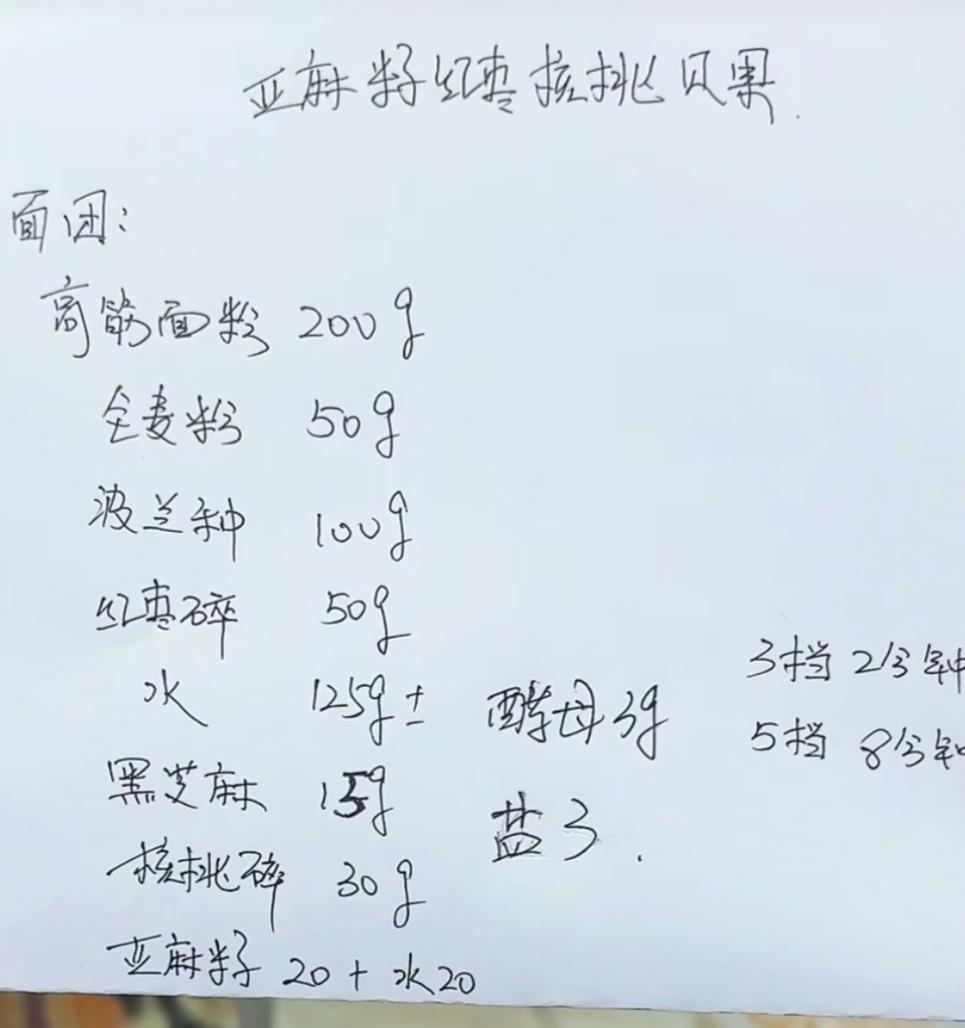 亚麻籽红枣核桃贝果.
面团:
高筋面粉 200g
全麦粉 50g
波兰种 100g
红枣碎 50g
水 125g± 酵母3g
3档 2分钟
5档 8分钟
黑芝麻 15g
盐3.
核桃碎 30g
亚麻籽 20+水20